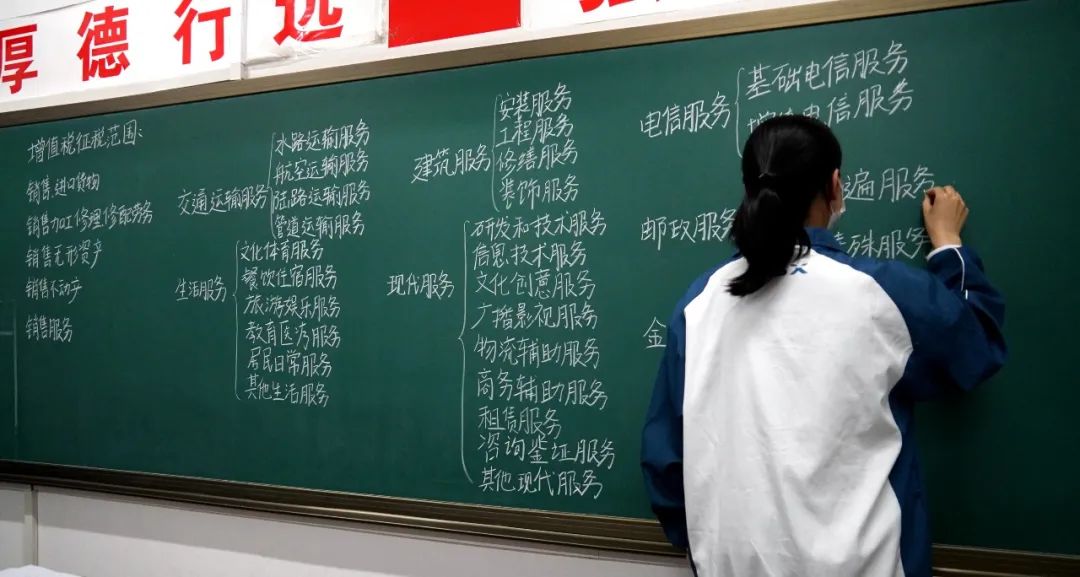 厚德行远
增值税征税范围:
销售进口货物
销售加工修理修配劳务
销售无形资产
销售不动产
销售服务
交通运输服务
水路运输服务
航空运输服务
陆路运输服务
管道运输服务
生活服务
文化体育服务
餐饮住宿服务
旅游娱乐服务
教育医疗服务
居民日常服务
其他生活服务
建筑服务
安装服务
工程服务
修缮服务
装饰服务
现代服务
研发和技术服务
信息技术服务
文化创意服务
广播影视服务
物流辅助服务
商务辅助服务
租赁服务
咨询鉴证服务
其他现代服务
电信服务
基础电信服务
增值电信服务
邮政服务
遍服务
特殊服务
金